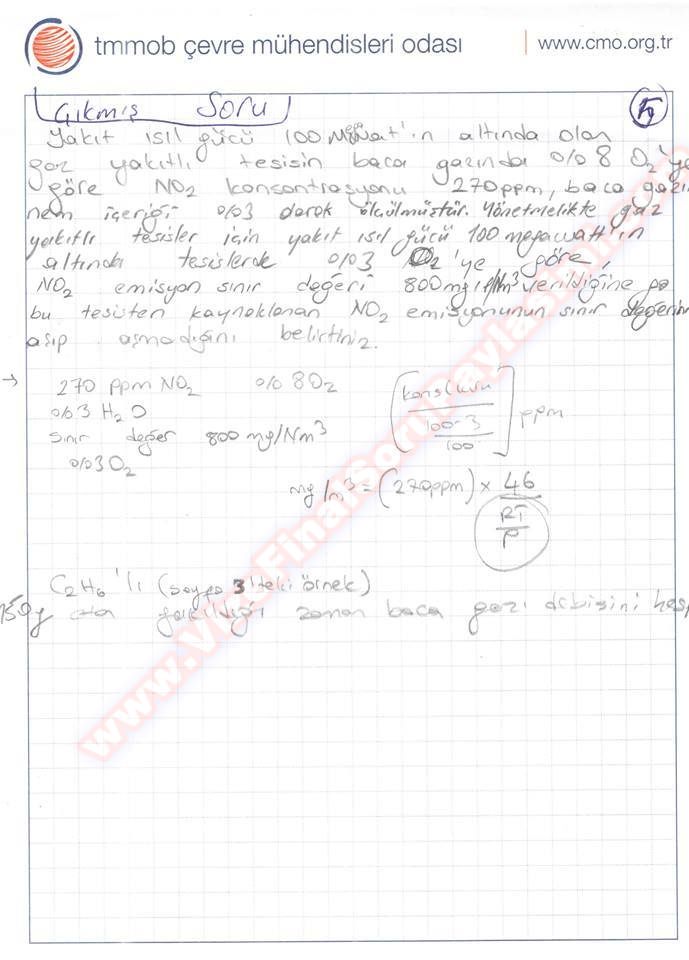 tmmob çevre mühendisleri odası | www.cmo.org.tr
Çıkmış Soru
5
Yakıt ısıl gücü 100 'ın altında olan
gaz yakıtlı tesisin baca gazında %8 O2'ye
göre NO2 konsantrasyonu 270ppm, baca gazı
nem içeriği %3 olarak ölçülmüştür. Yönetmelikte gaz
yakıtlı tesisler için yakıt ısıl gücü 100 megawatt'ın
altında tesislerde %3 O2'ye göre,
NO2 emisyon sınır değeri 800mg/Nm³ verildiğine
bu tesisten kaynaklanan NO2 emisyonunun sınır değerini
aşıp aşmadığını belirtiniz.
→ 270 ppm NO2 %8O2
%3 H2O
sınır değer 800 mg/Nm³
%3O2
[kons(kuru) / (100-3 / 100)] ppm
mg/m³ = (270ppm) × 46 / (RT / P)
C2H6'lı (sayfa 3'teki örnek)
zaman baca gazı debisini
www.VizeFinalSoruPaylasimi.com